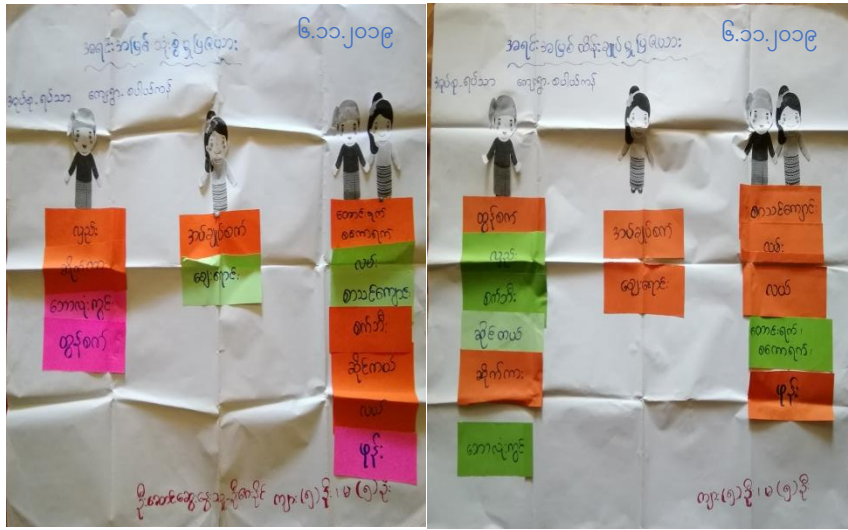 ၆.၁၁.၂၀၁၉
အရင်းအမြစ် သုံးစွဲမှုပြဇယား
အုပ်စု-ရပ်သာ ကျေးရွာ-စပါယ်ကန်
လှည်း
ဆိုက်ကား
ဘောလုံးကွင်း
ထွန်စက်
အပ်ချုပ်စက်
ဈေးရောင်း
တောင်းရက်
စကောရက်
လမ်း
စာသင်ကျောင်း
စက်ဘီး
ဆိုင်ကယ်
လယ်
ဖုန်း
ကျား(၅)ဦး၊ မ(၅)ဦး
၆.၁၁.၂၀၁၉
အရင်းအမြစ် ထိန်းချုပ်မှုပြဇယား
အုပ်စု-ရပ်သာ ကျေးရွာ-စပါယ်ကန်
ထွန်စက်
လှည်း
စက်ဘီး
ဆိုင်ကယ်
ဆိုက်ကား
ဘောလုံးကွင်း
အပ်ချုပ်စက်
ဈေးရောင်း
စာသင်ကျောင်း
လမ်း
လယ်
တောင်းရက်၊
စကောရက်၊
ဖုန်း
ကျား(၅)ဦး၊ မ(၅)ဦး